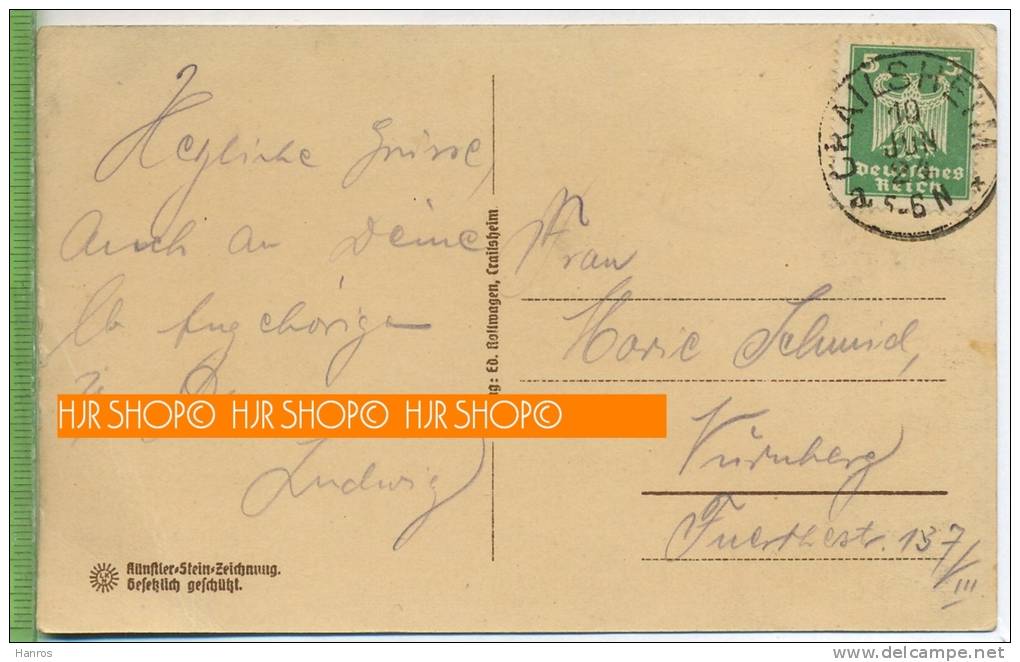 Herzliche Grüsse,
auch an Deine
lb Angehörigen
HJR SHOP© HJR SHOP© HJR SHOP©
Ludwig
Künstler-Stein-Zeichnung.
Gesetzlich geschützt.
Ed. Rollwagen, Crailsheim
5 5
Deutsches
Reich
CRAILSHEIM
10
JUN
a 5-6 N *
Frau
Marie Schmid,
Nürnberg
Fuertherstr. 137/III
Hanros
www.delcampe.net